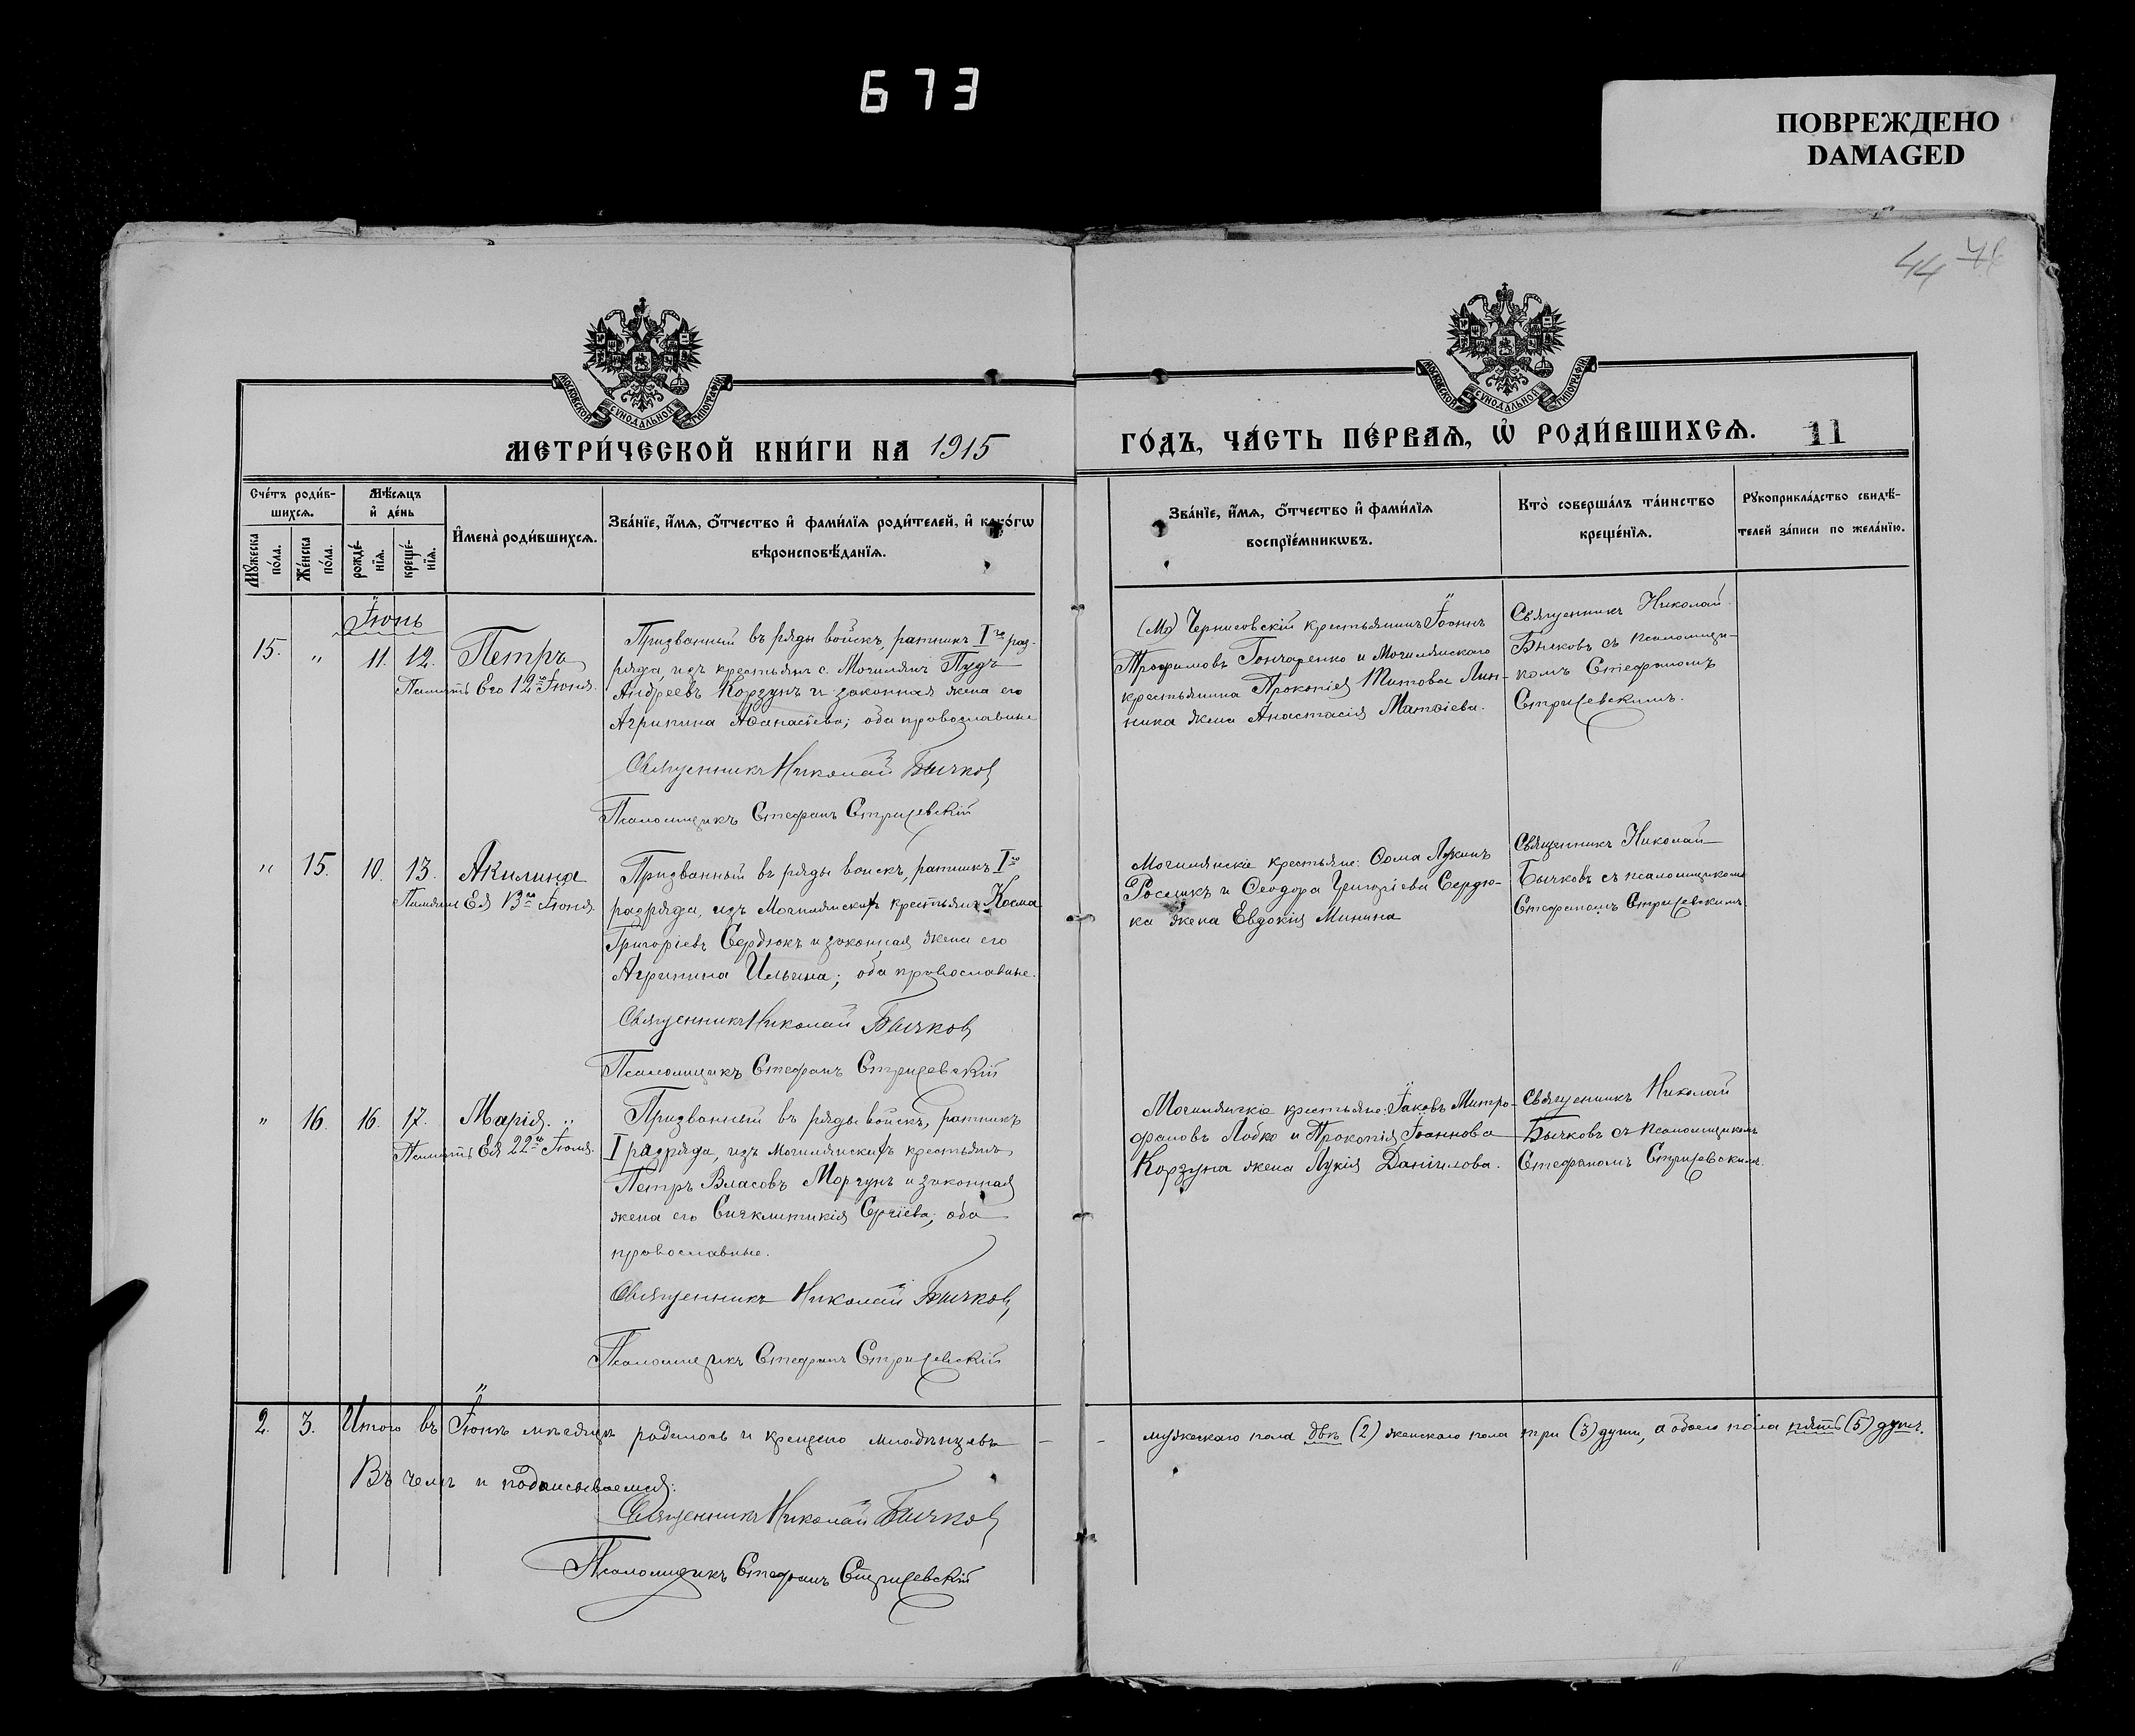 673
ПОВРЕЖДЕНО
DAMAGED
44
МОСКОВСКОЙ СУНОДАЛЬНОЙ ТИПОГРАФІИ
МОСКОВСКОЙ СУНОДАЛЬНОЙ ТИПОГРАФІИ
МЕТРИ́ЧЕСКОЙ КНИ́ГИ НА 1915
ГО́ДЪ, ЧА́СТЬ ПЕ́РВАѦ, Ѡ҆ РОДИ́ВШИХСѦ. 11
Сче́тъ роди́в-
шихсѧ.
Мꙋ́жеска по́ла.
Же́нска по́ла.
Мѣ́сѧцъ
и҆ де́нь
рожде́-
нїѧ.
креще́-
нїѧ.
И҆мена̀ роди́вшихсѧ.
Зва́нїе, и҆́мѧ, ѻ҆́тчество и҆ фами́лїѧ роди́телей, и҆ како́гѡ
вѣроисповѣ́данїѧ.
Зва́нїе, и҆́мѧ, ѻ҆́тчество и҆ фами́лїѧ
воспрїе́мникѡвъ.
Кто̀ соверша́лъ та́инство
креще́нїѧ.
Рꙋкоприкла́дство свидѣ́-
телей за́писи по жела́нїю.
Іюнь
15. " 11. 12. Петръ
Память Его 12го Іюня.
Призванный въ ряды войскъ, ратникъ Iго раз-
ряда, изъ крестьянъ с. Могилянъ Пудъ
Андреевъ Корзунъ и законная жена его
Агрипина Аѳанасіева; оба православные
Священникъ Николай Бычков
Псаломщикъ Стефанъ Стрисевскій
Чернисовскій крестьянинъ Іоаннъ
Трофимовъ Гончаренко и Могилянскаго
крестьянина Прокопія Титова Лин-
ника жена Анастасія Матѳіева.
Священникъ Николай
Бычковъ съ псаломщи-
комъ Стефаномъ
Стрисевскимъ.
" 15. 10. 13. Акилина
Память Ея 13го Іюня.
Призванный въ ряды войскъ, ратникъ Iго
разряда, изъ Могилянскихъ крестьянъ Косма
Григоріевъ Сердюкъ и законная жена его
Агрипина Ильина; оба православные.
Священникъ Николай Бычков
Псаломщикъ Стефанъ Стрисевскій
Могилянскіе крестьяне: Ѳома Лукинъ
и Ѳеодора Григоріева Сердю-
ка жена Евдокія Минина
Священникъ Николай
Бычковъ съ псаломщикомъ
Стефаномъ Стрисевскимъ
" 16. 16. 17. Марія. "
Память Ея 22го Іюля.
Призванный въ ряды войскъ, ратникъ
I разряда, изъ Могилянскихъ крестьянъ
Петръ Власовъ Моргунъ и законная
жена его Сигклитикія Сергіева; оба
православные.
Священникъ Николай Бычков
Псаломщикъ Стефанъ Стрисевскій
Могилянскіе крестьяне: Іаковъ Митро-
фановъ Лобко и Прокопія Іоаннова
Корзуна жена Лукія Даніилова.
Священникъ Николай
Бычковъ съ псаломщикомъ
Стефаномъ Стрисевскимъ.
2. 3. Итого въ Іюнѣ мѣсяцѣ родилось и крещено младенцевъ - - мужескаго пола двѣ (2) женскаго пола три (3) души, а обоего пола пять (5) душъ.
Въ чемъ и подписываемся:
Священникъ Николай Бычков
Псаломщикъ Стефанъ Стрисевскій